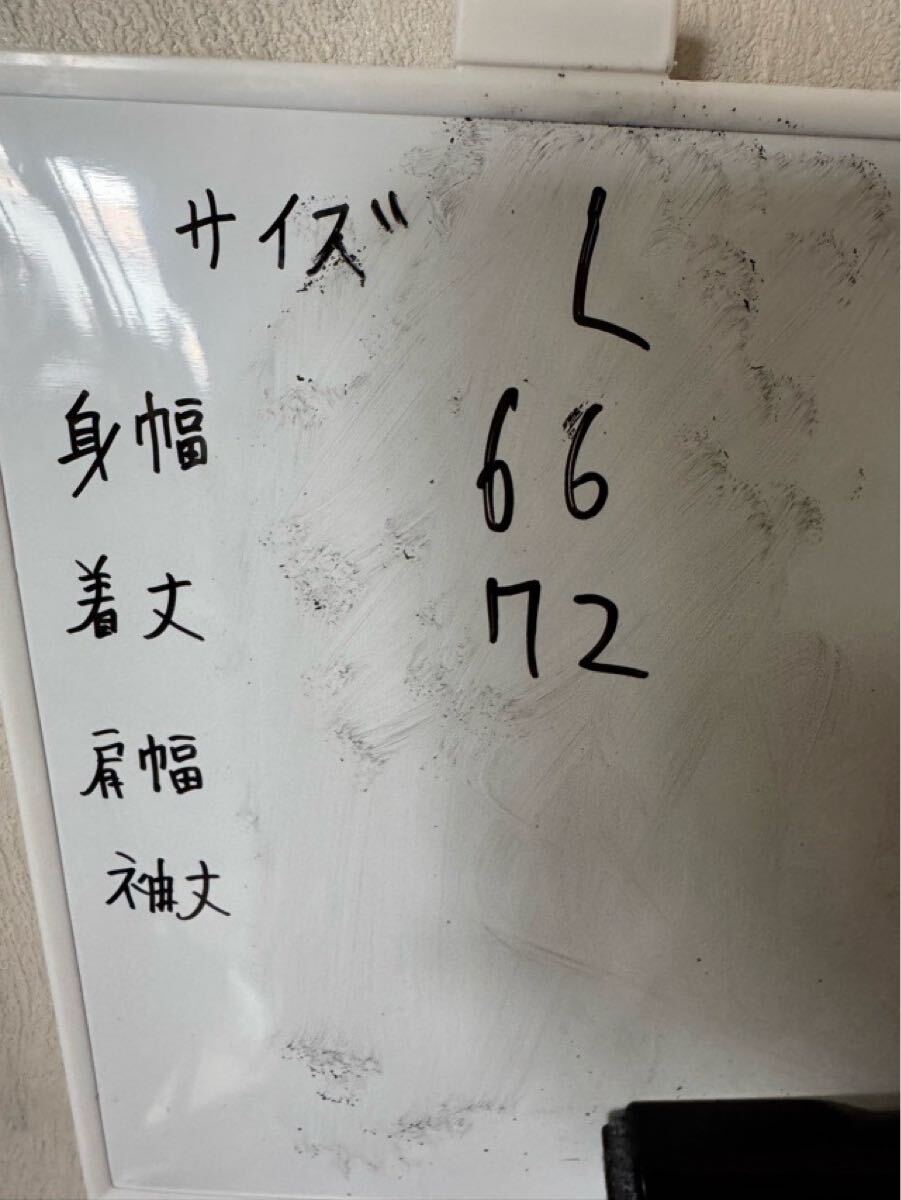 サイズ L
身幅 66
着丈 72
肩幅
袖丈